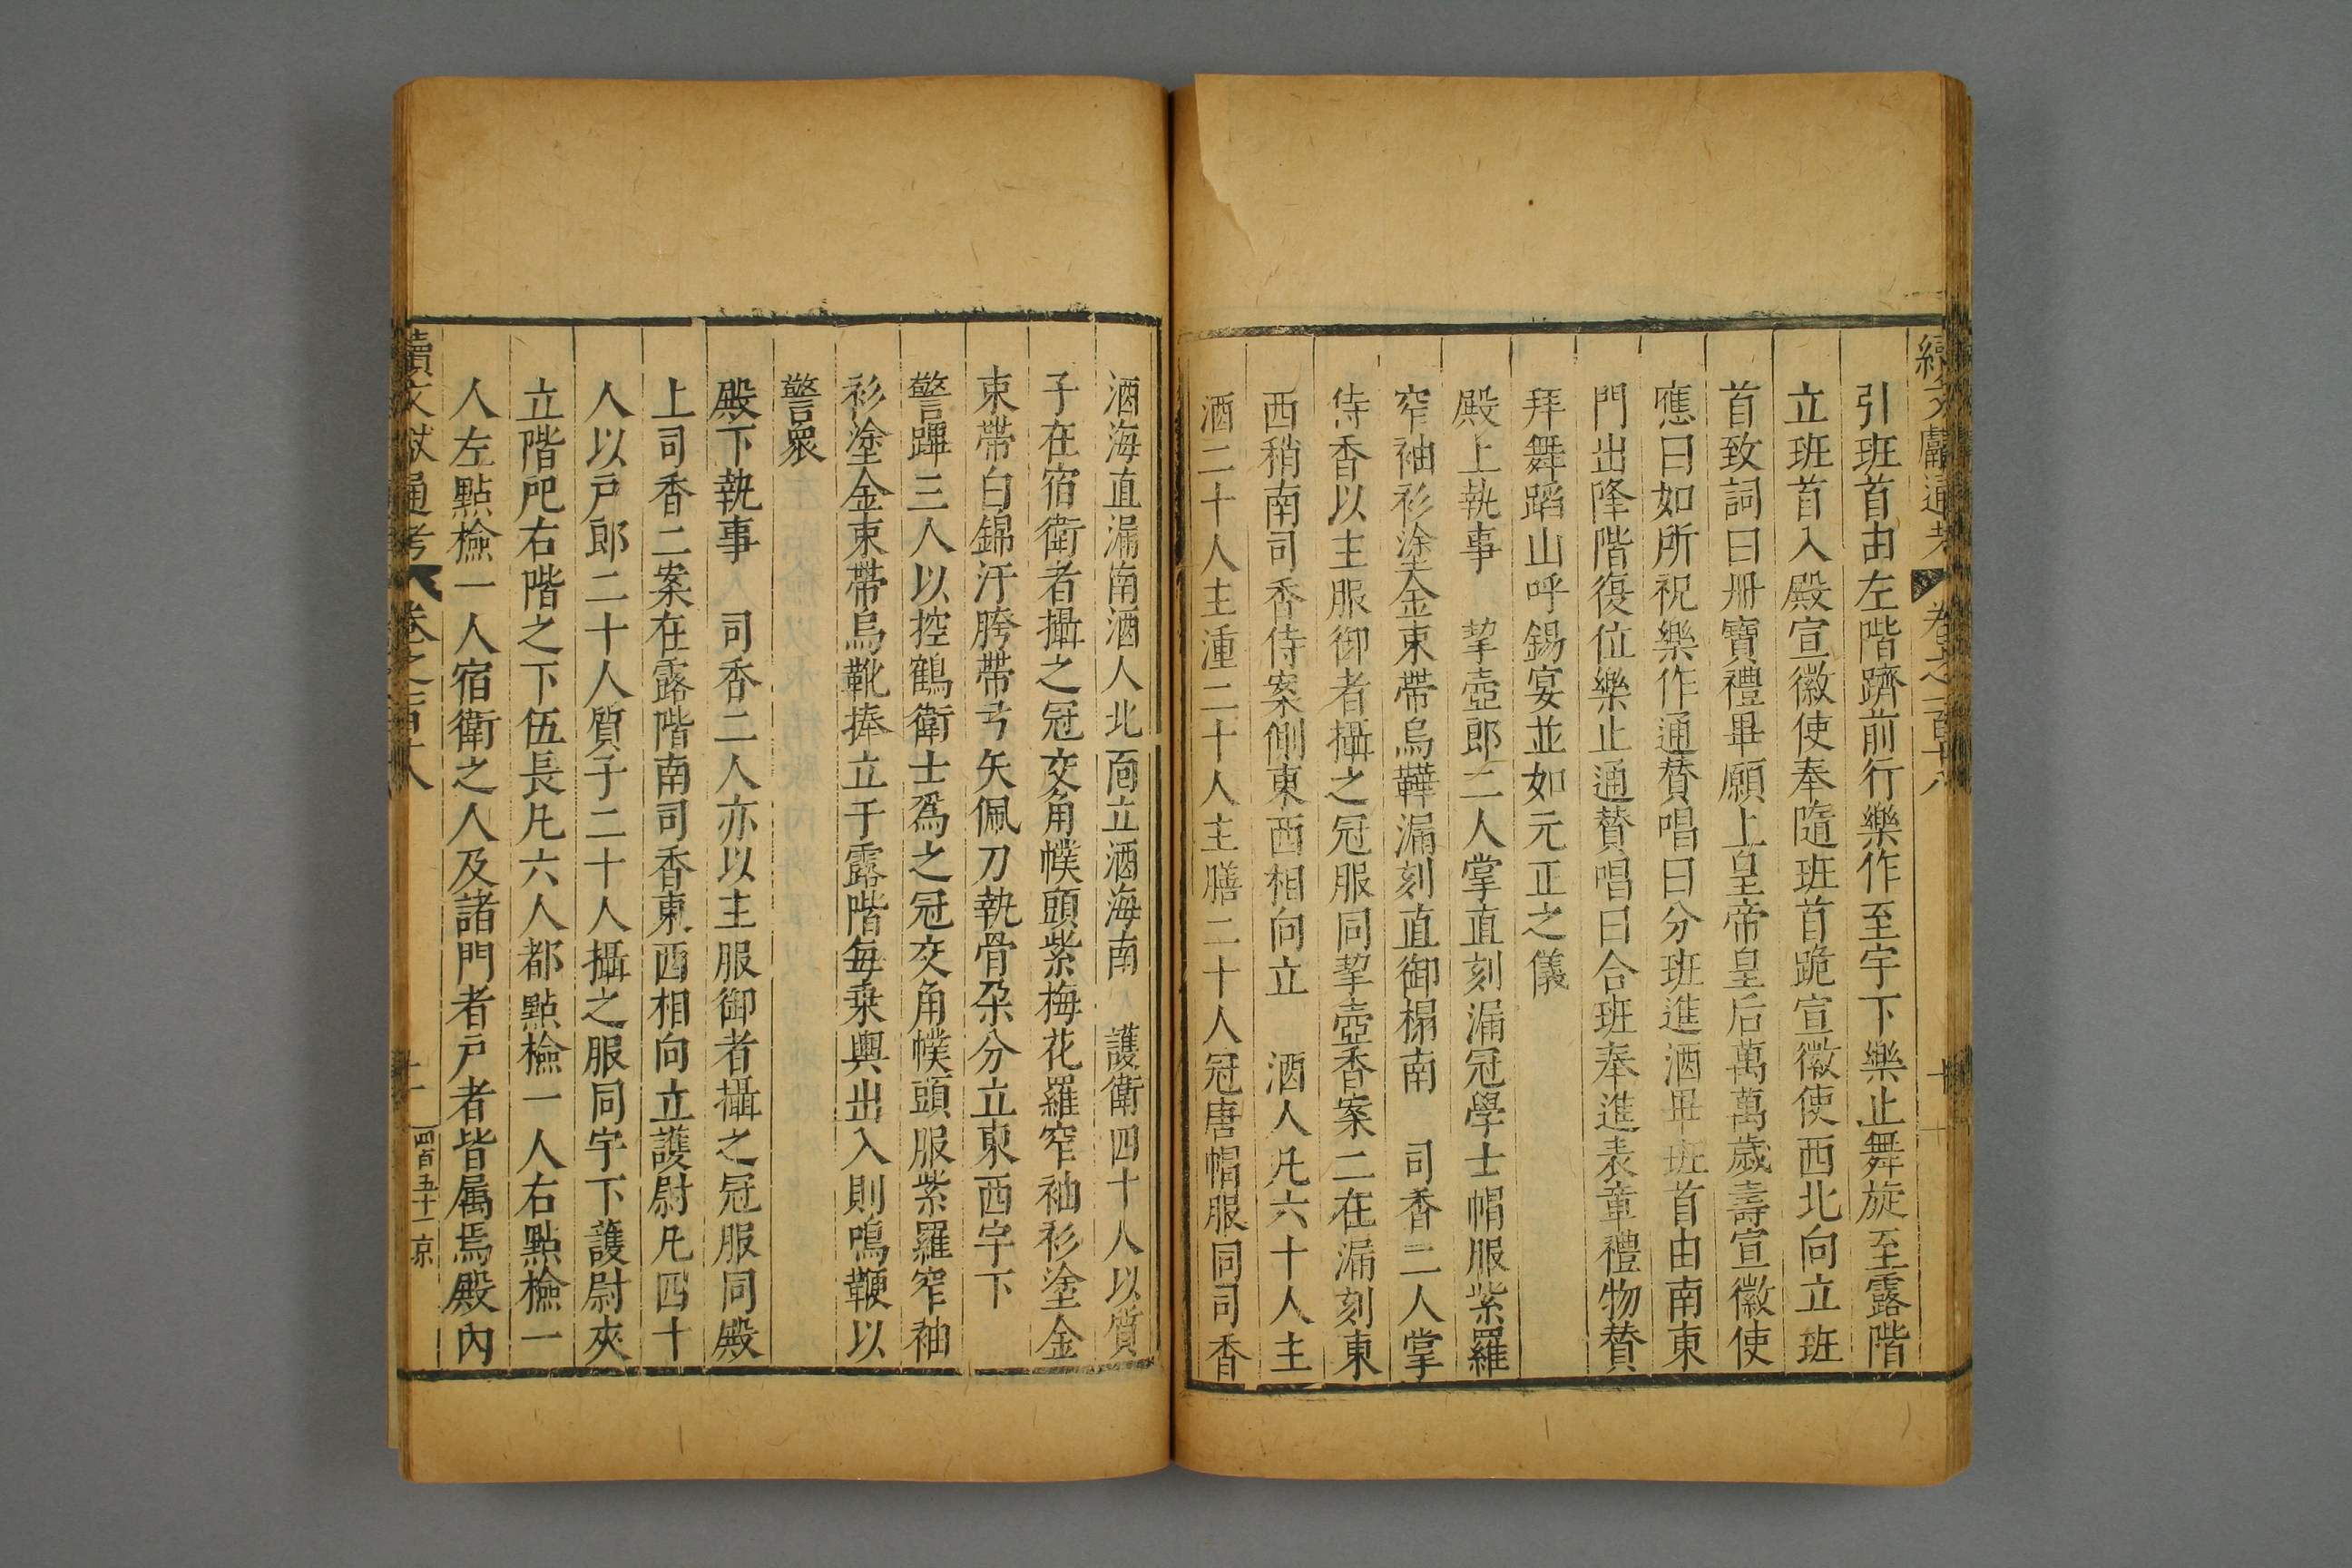 續文獻通考 卷之一百十八 十
引班首由左階躋前行樂作至宇下樂止舞旋至露階
立班首入殿宣徽使奉隨班首跪宣徽使西北向立班
首致詞曰冊寶禮畢願上皇帝皇后萬萬歲壽宣徽使
應曰如所祝樂作通賛唱曰分班進酒畢班首由南東
門出降階復位樂止通賛唱曰合班奉進表章禮物賛
拜舞蹈山呼錫宴並如元正之儀
殿上執事 挈壺郎二人掌直刻漏冠學士帽服紫羅
窄袖衫塗金束帶烏鞾漏刻直御榻南 司香二人掌
侍香以主服御者攝之冠服同挈壺香案二在漏刻東
西稍南司香侍案側東西相向立 酒人凡六十人主
酒二十人主湩二十人主膳二十人冠唐帽服同司香
酒海直漏南酒人北面立酒海南 護衛四十人以質
子在宿衛者攝之冠交角幞頭紫梅花羅窄袖衫塗金
束帶白錦汗胯帶弓矢佩刀執骨朶分立東西宇下
警蹕三人以控鶴衛士爲之冠交角幞頭服紫羅窄袖
衫塗金束帶烏靴捧立于露階每乗輿出入則鳴鞭以
警衆
殿下執事 司香二人亦以主服御者攝之冠服同殿
上司香二案在露階南司香東西相向立護尉凡四十
人以戸郎二十人質子二十人攝之服同宇下護尉夾
立階戺右階之下伍長凡六人都點檢一人右點檢一
人左點檢一人宿衛之人及諸門者戸者皆属焉殿內
續文獻通考 卷之一百十八 十一 四百五十一 京